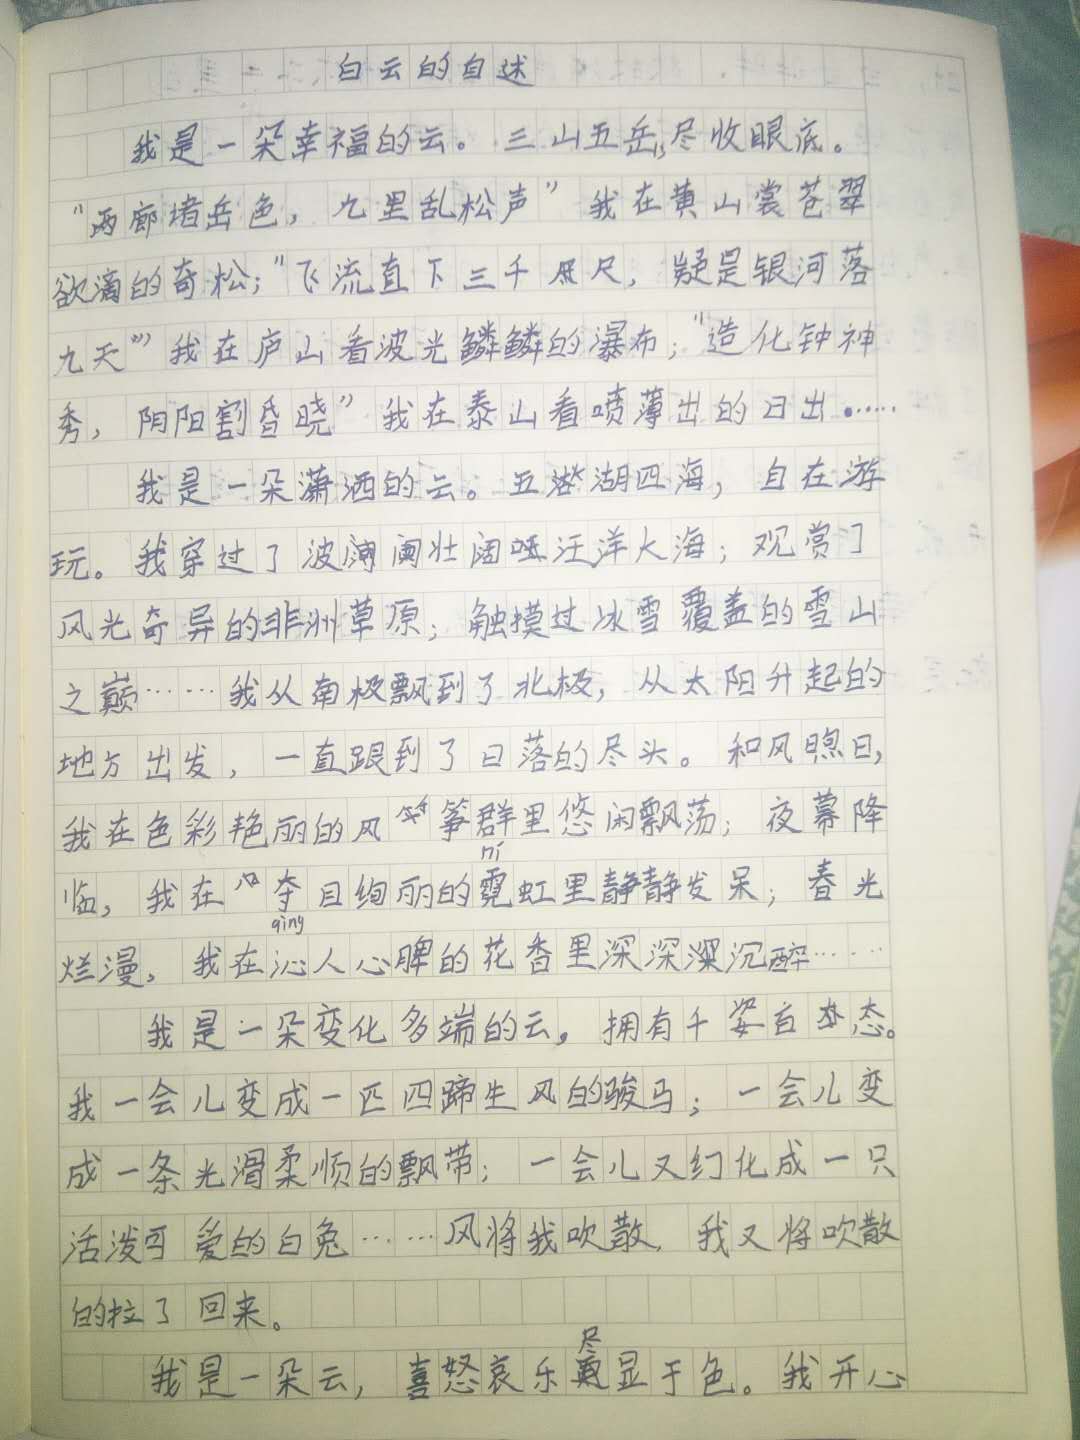 白云的自述
我是一朵幸福的云。三山五岳,尽收眼底。
“两廊堵岳色，九里乱松声”我在黄山裳苍翠
欲滴的奇松；“飞流直下三千尺，疑是银河落
九天”我在庐山看波光鳞鳞的瀑布；“造化钟神
秀，阴阳割昏晓”我在泰山看喷薄出的日出……
我是一朵潇洒的云。五湖四海，自在游
玩。我穿过了波澜阔汪洋大海；观赏了
风光奇异的非洲草原；触摸过冰雪覆盖的雪山
之巅……我从南极飘到了北极，从太阳升起的
地方出发，一直跟到了日落的尽头。和风煦日，
我在色彩艳丽的风筝群里悠闲飘荡；夜幕降
ní
临，我在夺目绚丽的霓虹里静静发呆；春光
qìng
烂漫，我在沁人心脾的花香里深深沉醉……
我是一朵变化多端的云。拥有千姿百态。
我一会儿变成一匹四蹄生风的骏马；一会儿变
成一条光滑柔顺的飘带；一会儿又幻化成一只
活泼可爱的白兔……风将我吹散，我又将吹散
的拉了回来。
尽
我是一朵云，喜怒哀乐显于色。我开心